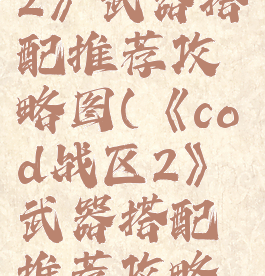 2》武器搭
配推荐攻
略图(《co
d战区2》
武器搭配
推荐攻略